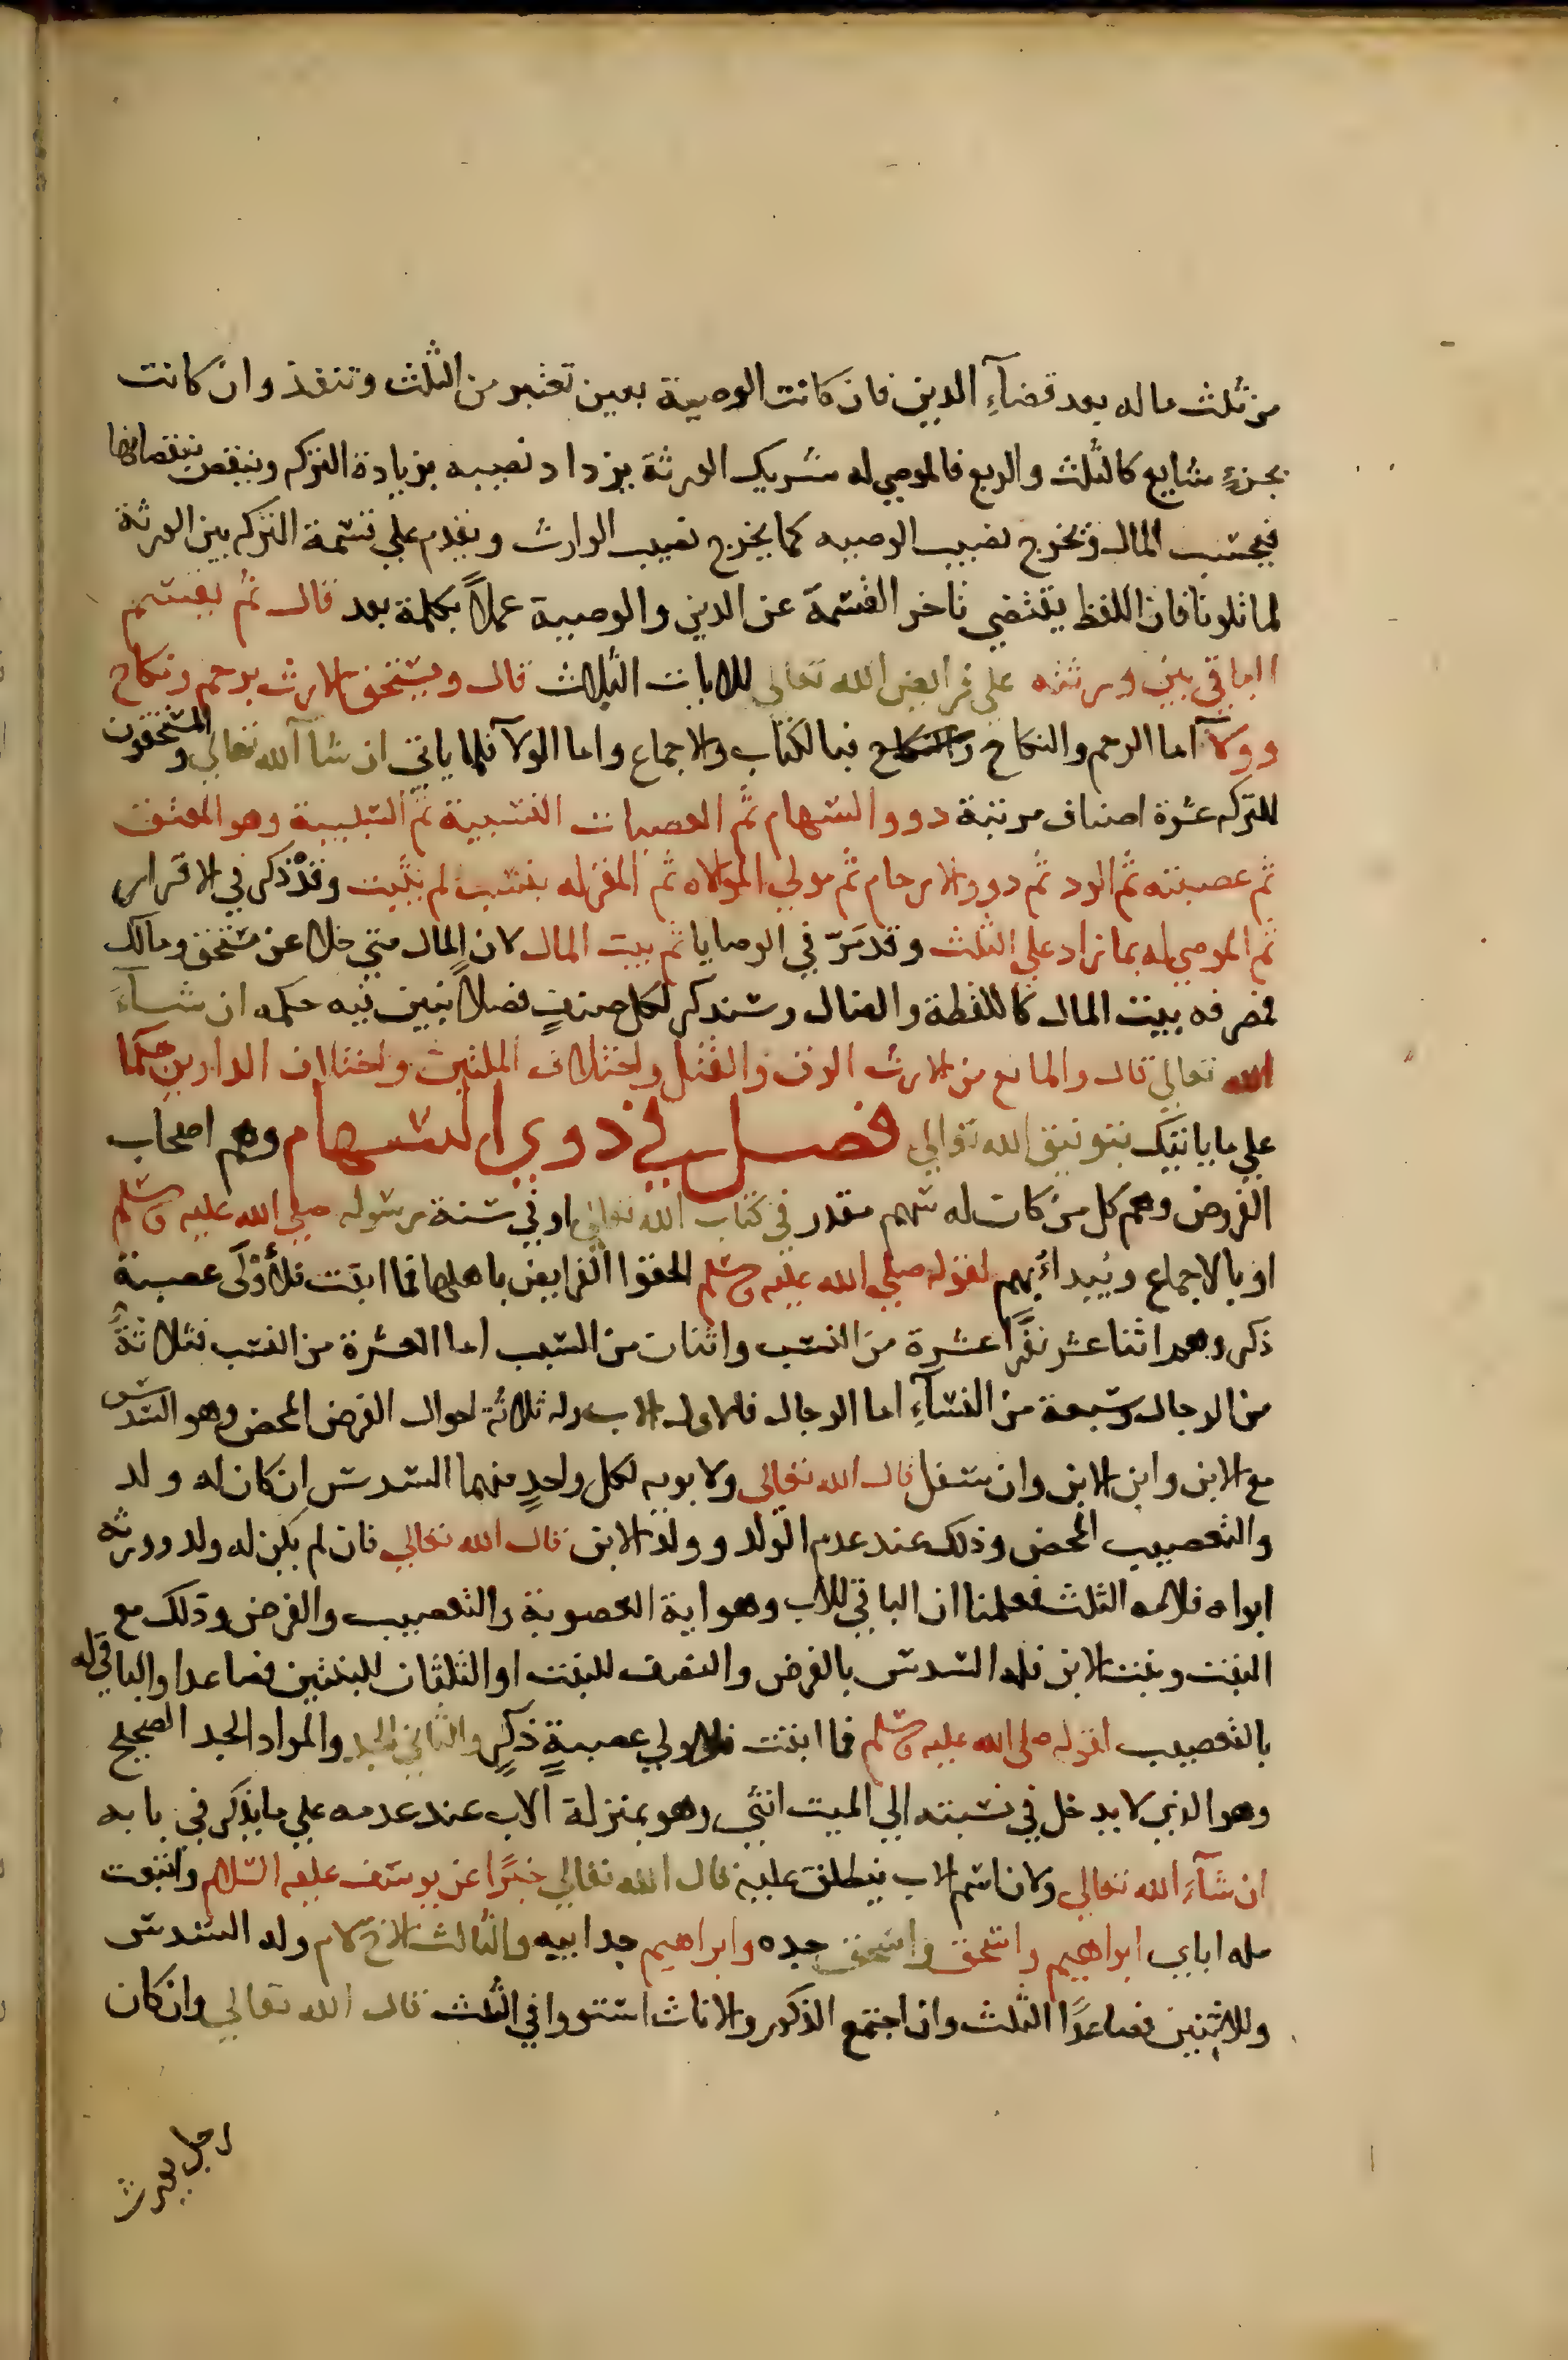 من ثلث ماله بعد قضآءِ الدين فان كانت الوصية بعين تعتبر من الثلث وتنفذ وان كانت
بجزءٍ شايع كالثلث والربع فالموصي له شريك الورثة يزداد نصيبه بزيادة التركه وينقص بنقصانها
فيحتسب المال ويخرج نصيب الوصيه كما يخرج نصيب الوارث ويقدم علي قسمة التركه بين الورثة
لما تلونا فان اللفظ يقتضي تاخر القسمة عن الدين والوصية عملاً بكلمة بعد قال ثم يقسم
الباقي بين ورثته علي فرايض الله تعالي للايات الثلاث قال ويستحق الارث برحم ونكاح
وولآ اما الرحم والنكاح فبالكتاب والاجماع واما الولآ فلما ياتي ان شآ الله تعالي والمستحقون
للتركه عشرة اصناف مرتبة ذوو السهام ثم العصبات النسبية ثم السببية وهو المعتق
ثم عصبته ثم الرد ثم ذوو الارحام ثم مولي الموالاه ثم المقر له بنسب لم يثبت وقد ذكر في الاقرار
ثم الموصي له بما زاد علي الثلث وقد مَرّ في الوصايا ثم بيت المال لان المال متي خلا عن مستحق ومالك
فمصرفه بيت المال كاللقطة والضال وسنذكر لكل صنفٍ فصلاً نبين فيه حكمه ان شآءَ
الله تعالي قال والمانع من الارث الرق والقتل واختلاف الملتين واختلاف الدارين حكما
علي ما ياتيك بتوفيق الله تعالي فصل في ذوي السهام وهم اصحاب
الفروض وهم كل من كان له سهم مقدر في كتاب الله تعالي او في سنة رسوله صلي الله عليه وسلم
او بالاجماع ويُبداءُ بهم لقوله صلي الله عليه وسلم الحقوا الفرايض باهلها فما ابقت فلأَوْلَي عصبة
ذكر وهم اثنا عشر نفرًا عشرة من النسب واثنان من السبب اما العشرة من النسب فثلاثةٌ
من الرجال وسبعة من النسآءِ اما الرجال فالاول الاب وله ثلاثة احوال الفرض المحض وهو السدس
مع الابن وابن الابن وان سفل قال الله تعالي ولابويه لكل واحدٍ منهما السدس ان كان له ولد
والتعصيب المحض وذلك عند عدم الولد وولد الابن قال الله تعالي فان لم يكن له ولد وورثه
ابواه فلامه الثلث فعلمنا ان الباقي للاب وهو اية العصوبة والتعصيب والفرض وذلك مع
البنت وبنت الابن فله السدس بالفرض والنصف للبنت او الثلثان للبنتين فصاعدا والباقي له
بالتعصيب لقوله صلي الله عليه وسلم فما ابقت فلاولي عصبةٍ ذكرٍ والثاني الجد والمراد الجد الصحيح
وهو الذي لا يدخل في نسبته الي الميت انثي وهو بمنزلة الاب عند عدمه علي ما يذكر في بابه
ان شآءَ الله تعالي ولان اسم الاب ينطلق عليه قال الله تعالي خبرًا عن يوسف عليه السلام واتبعت
مله اباي ابراهيم واسحق واسحق جده وابراهيم جد ابيه والثالث الاخ لام وله السدس
وللاثنين فصاعدًا الثلث وان اجتمع الذكور والاناث استووا في الثلث قال الله تعالي وان كان
رجل يورث